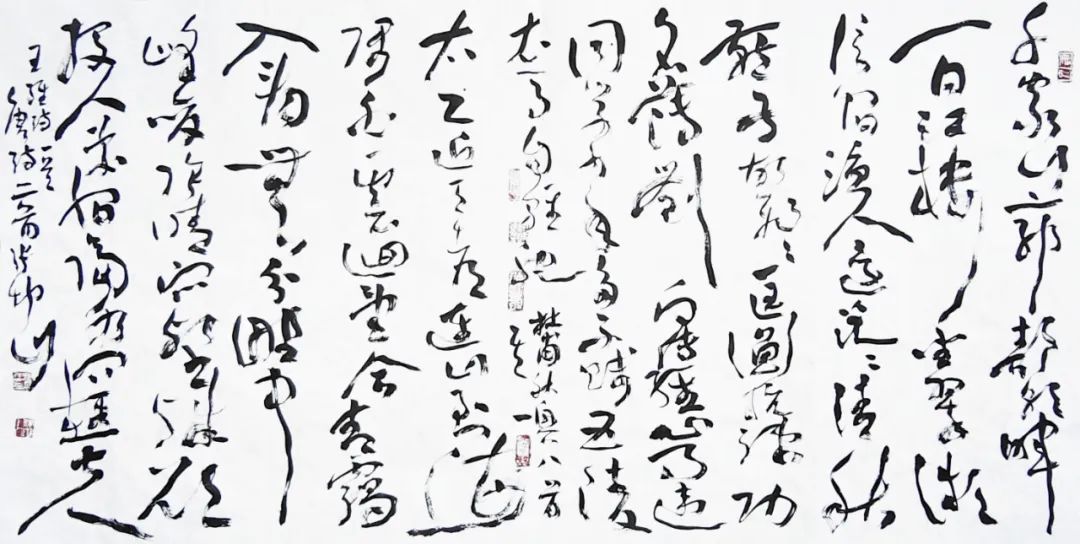 千家山郭静朝晖
一日江楼坐翠微
信宿渔人还泛泛清秋
燕子故飞飞匡衡抗疏功
名薄刘向传经心事违
同学少年多不贱五陵
衣马自轻肥 杜甫秋兴八首 其一
太乙近天都连山到海
隅白云迴望合青霭
入看无分野中
峰变阴晴众壑殊欲
投人处宿隔水问樵夫
王维诗一首
唐诗二首张坤山